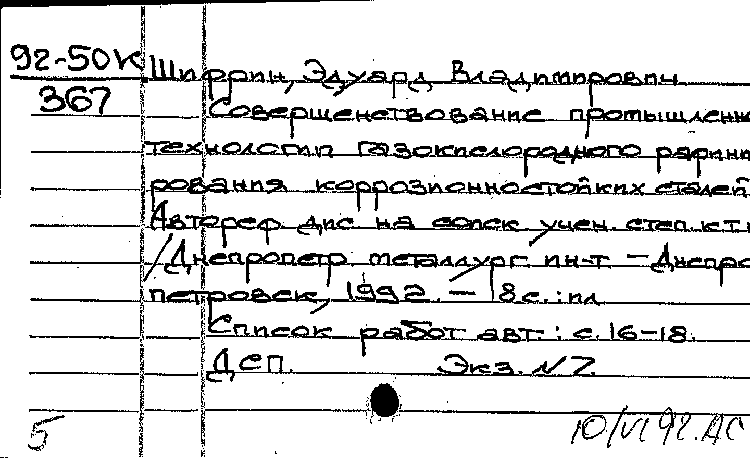 92-50К
367
Шифрин, Эдуард Владимирович
Совершенствование промышленн
технологии газокислородного рафини
рования коррозионностойких сталей
Автореф дис на соиск учен. степ. к.т.н
/Днепропетр металлург. ин-т – Днепро
петровск, 1992. – 18 с. : ил
Список работ авт. : с. 16-18.
ДСП. Экз. N 7.
5 10/VI 92. АС